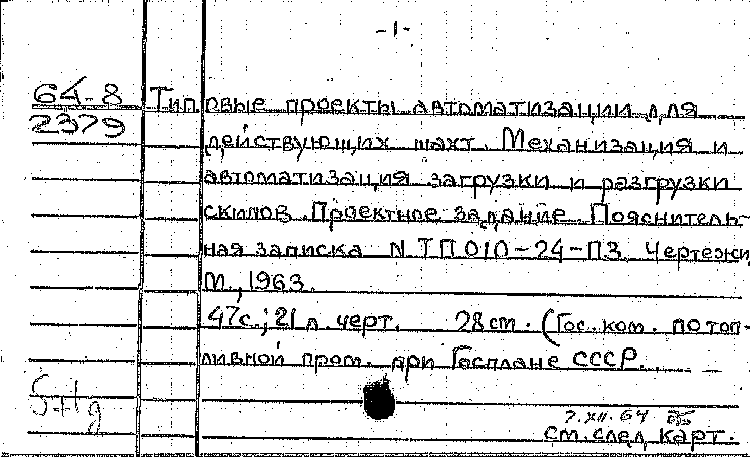 -1-
64-8 Типовые проекты автоматизации для
2379 действующих шахт. Механизация и
автоматизация загрузки и разгрузки
скипов. Проектное задание. Пояснитель-
ная записка N ТП010-24-ПЗ. Чертежи
М., 1963.
47с.; 21 л. черт. 28см. (Гос. ком. по топ-
ливной пром. при Госплане СССР.
7.XII.64
см. след. карт.